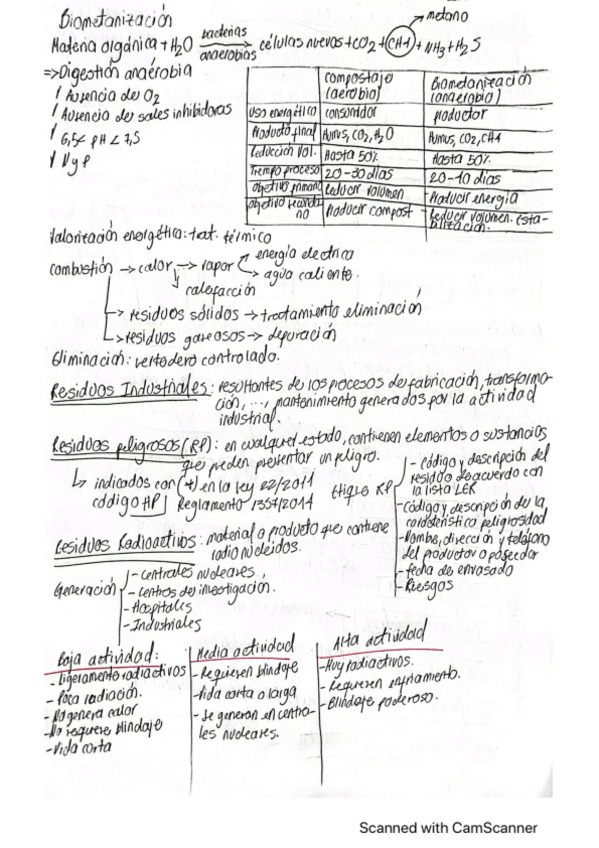 Biometanización
→metano
Materia orgánica + H2O bacterias anaerobias → células nuevas + CO2 + CH4 + NH3 + H2S
=> Digestión anaerobia
/ Ausencia de O2
/ Ausencia de sales inhibidoras
/ 6,5< pH < 7,5
/ N y P
compostaje (aerobio) | Biometanización (anaerobia)
Uso energético | consumidor | productor
Producto final | Humus, CO2, H2O | Humus, CO2, CH4
Reducción Vol. | Hasta 50% | Hasta 50%
Tiempo proceso | 20-30 días | 20-10 días
Objetivo primario | Reducir volumen | Producir energía
Objetivo secundario | Producir compost | Reducir volumen. Estabilización.
Valorización energética: trat. térmico
Combustión → calor → vapor → energía electrica
→ agua caliente.
calefacción
→ residuos sólidos → tratamiento eliminación
→ residuos gaseosos → depuración
Eliminación: vertedero controlado.
Residuos Industriales: resultantes de los procesos de fabricación, transforma-
ción, ..., mantenimiento generados por la actividad
industrial.
Residuos peligrosos (RP): en cualquier estado, contienen elementos o sustancias
que pueden presentar un peligro.
↳ indicados con (*) en la ley 22/2011
código HP | Reglamento 1357/2014
Etiqu RP
- código y descripción del
residuo de acuerdo con
la lista LER
- Código y descripción de la
característica peligrosidad
- Nombre, dirección y teléfono
del productor o poseedor
- fecha de envasado
- Riesgos
Residuos Radioactivos: material o producto que contiene
radionucleidos.
Generación
- Centrales nucleares,
- Centros de investigación.
- Hospitales
- Industriales
Baja actividad:
- Ligeramente radiactivos
- Poca radiación.
- No genera calor
- No requiere blindaje
- Vida corta
Media actividad
- Requieren blindaje
- Vida corta o larga
- Se generan en centra-
les nucleares.
Alta actividad
- Muy radiactivos.
- Requieren enfriamiento.
- Blindaje poderoso.
Scanned with CamScanner